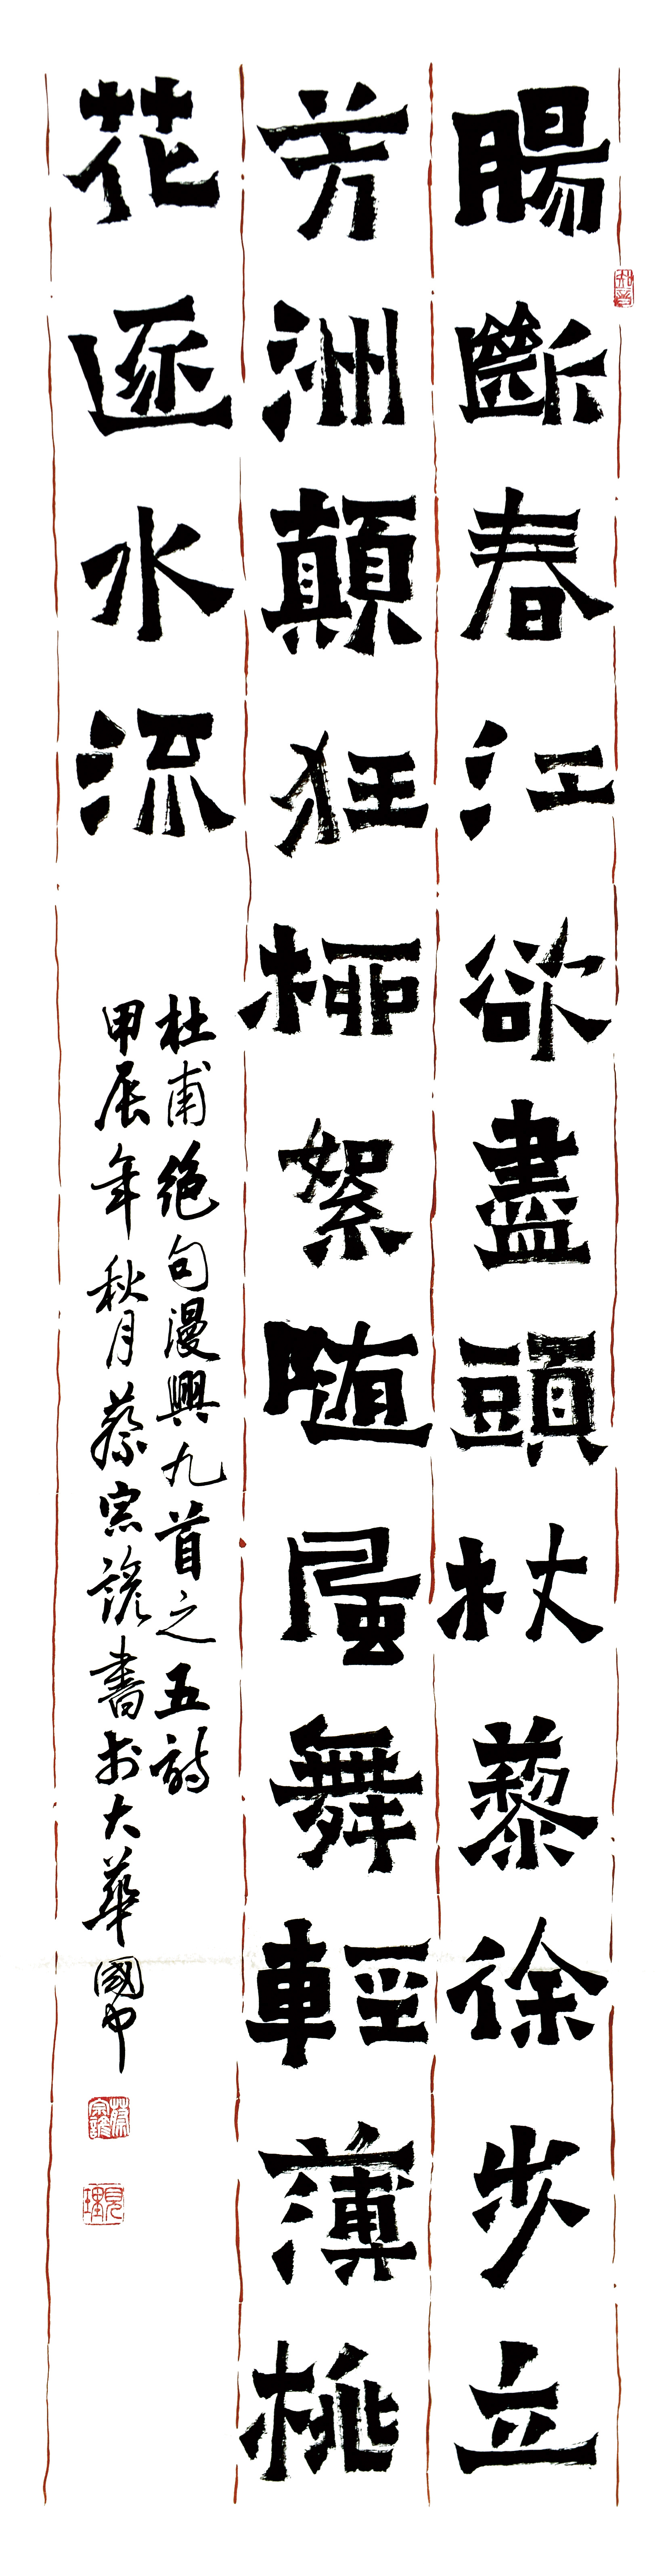 腸斷春江欲盡頭杖藜徐步立
芳洲顛狂柳絮随風舞輕薄桃
花逐水流
杜甫絕句漫興九首之五詩
甲辰年秋月蔡宗諺書於大華國中